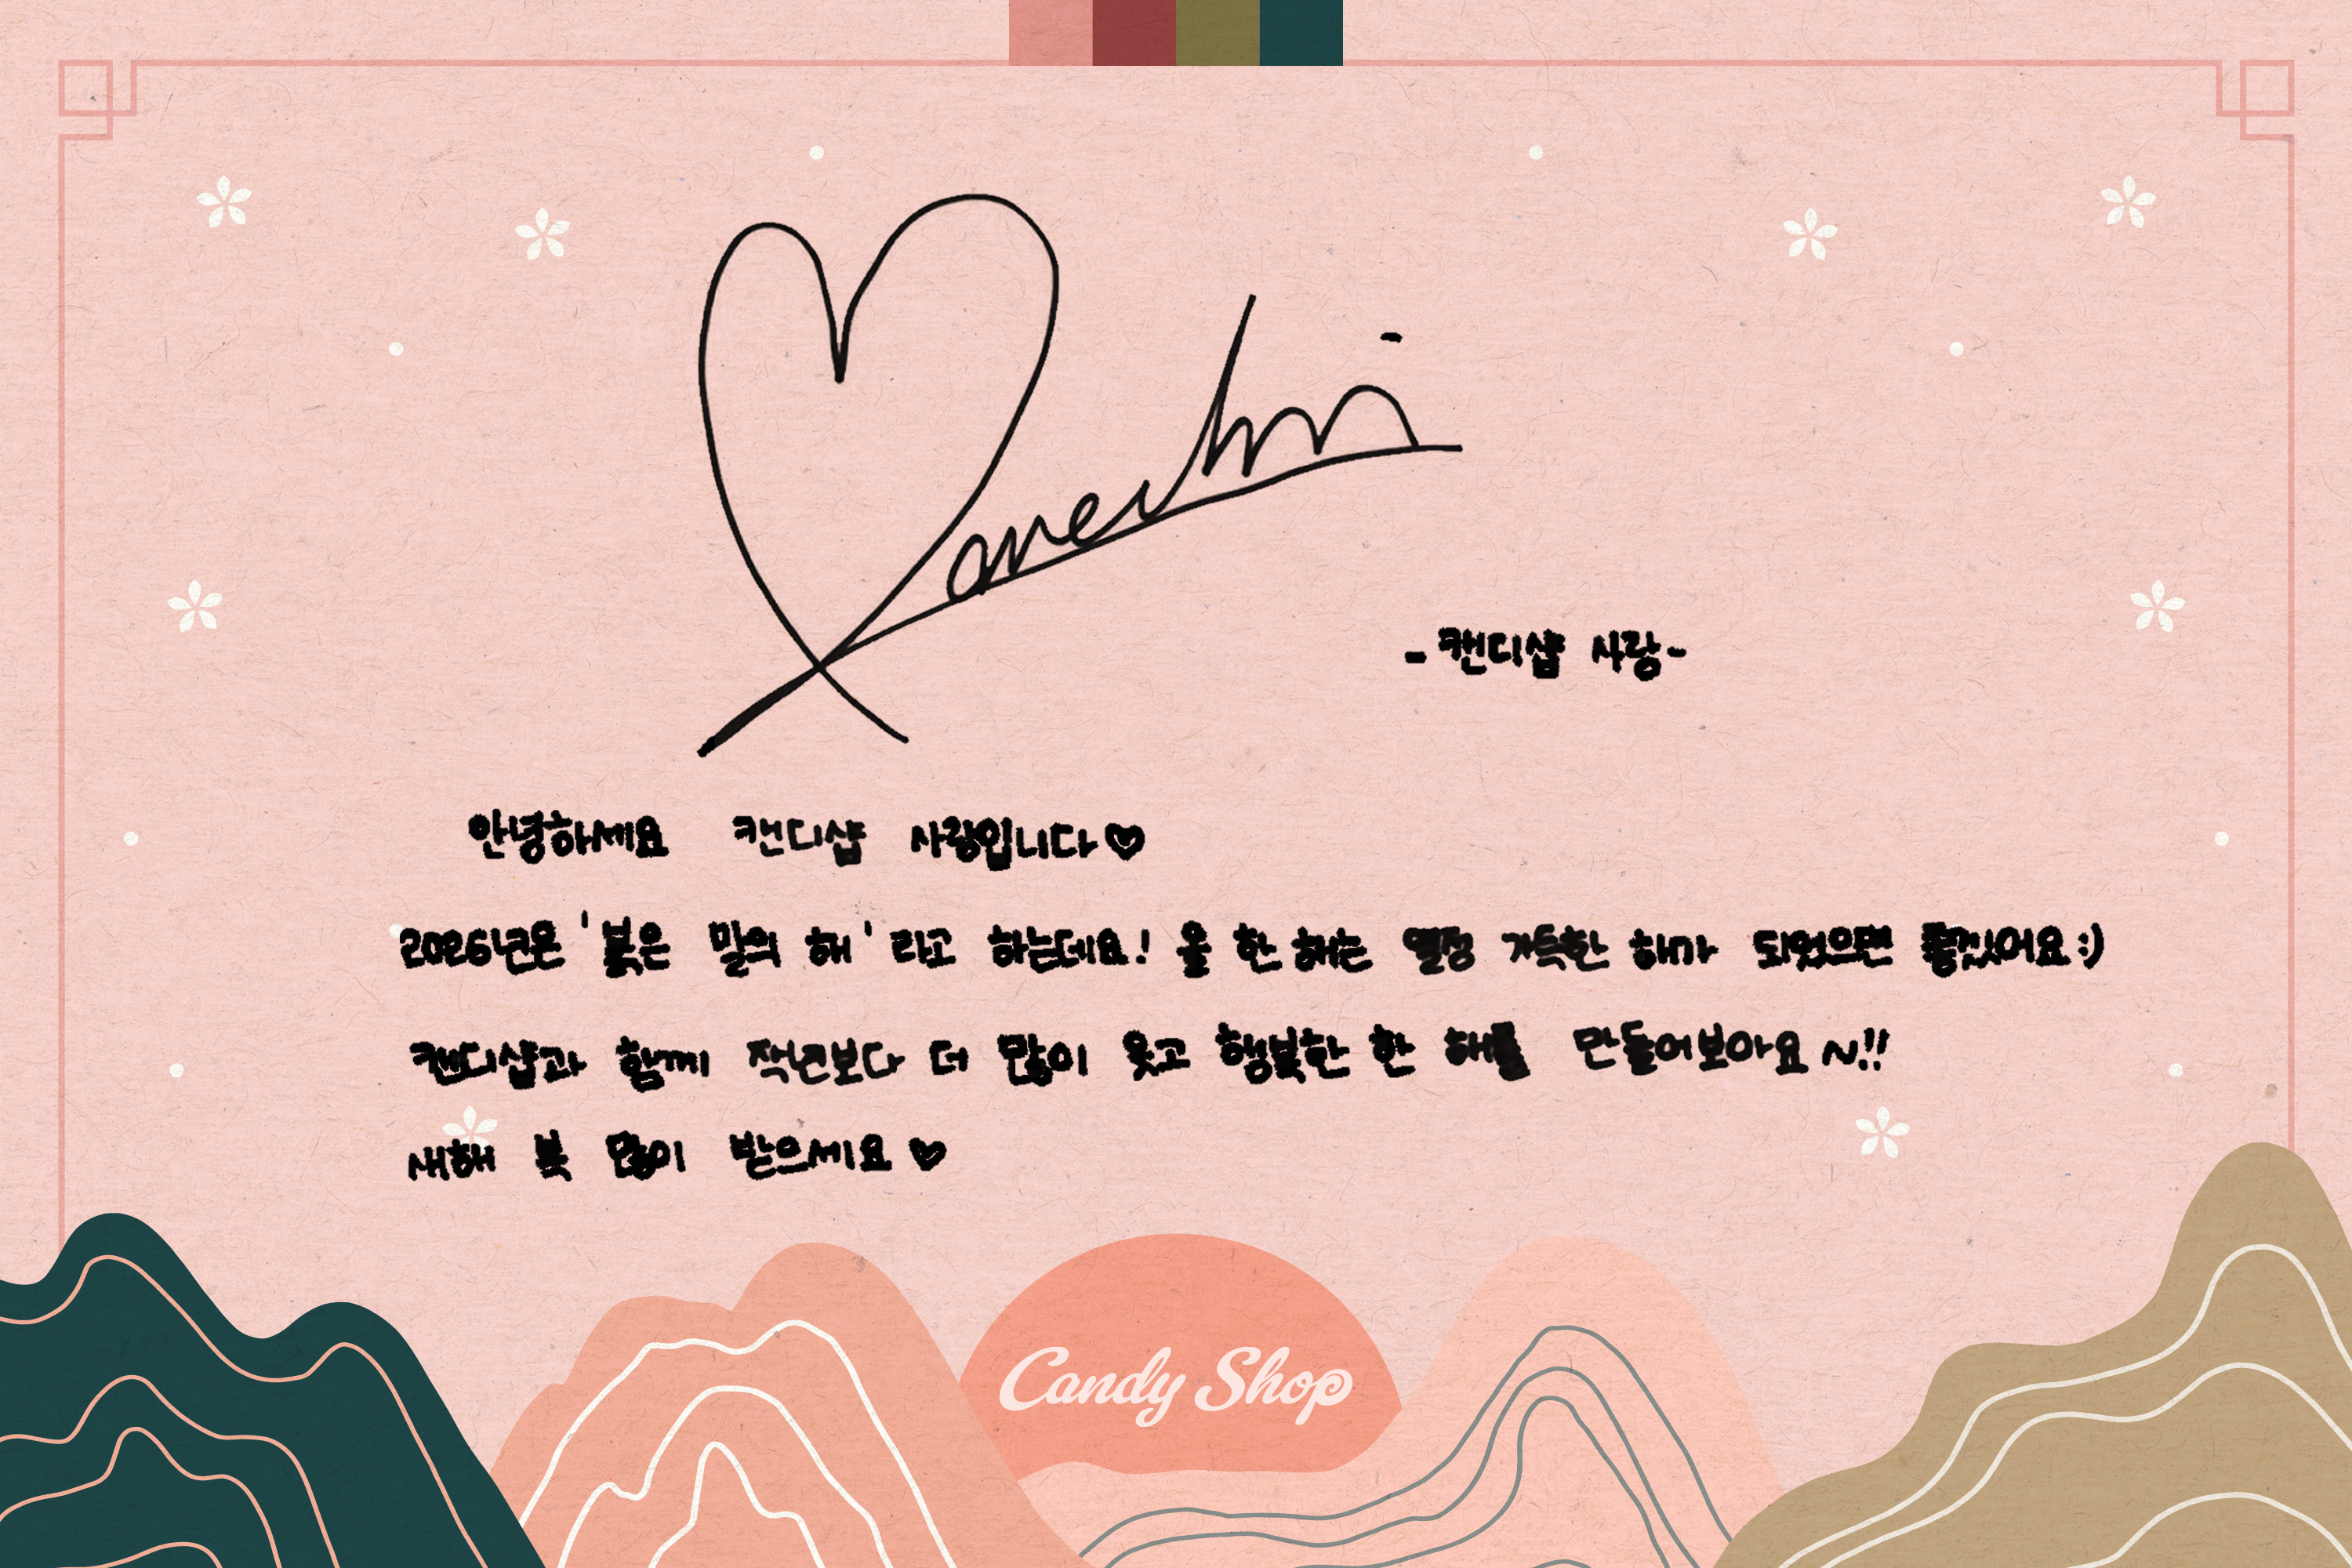 -캔디샵 사랑-
안녕하세요 캔디샵 사랑입니다♡
2026년은 '붉은 말의 해' 라고 하는데요! 올 한 해는 열정 가득한 해가 되었으면 좋겠어요 :)
캔디샵과 함께 작년보다 더 많이 웃고 행복한 한 해를 만들어보아요 ~!!
새해 복 많이 받으세요 ♡
Candy Shop